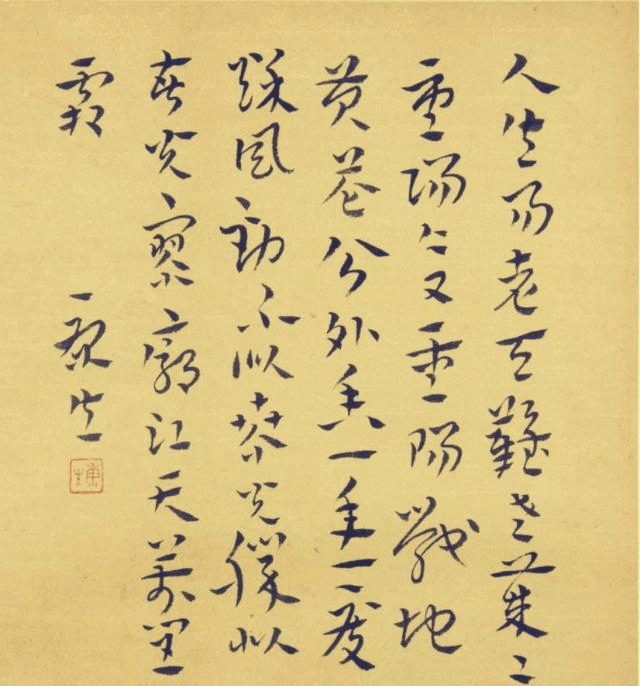 人生易老天難老歲〻
重陽今又重陽戰地
黄花分外香一年一度
秌風勁不似春光勝似
春光寥廓江天萬里
霜 康生
康生